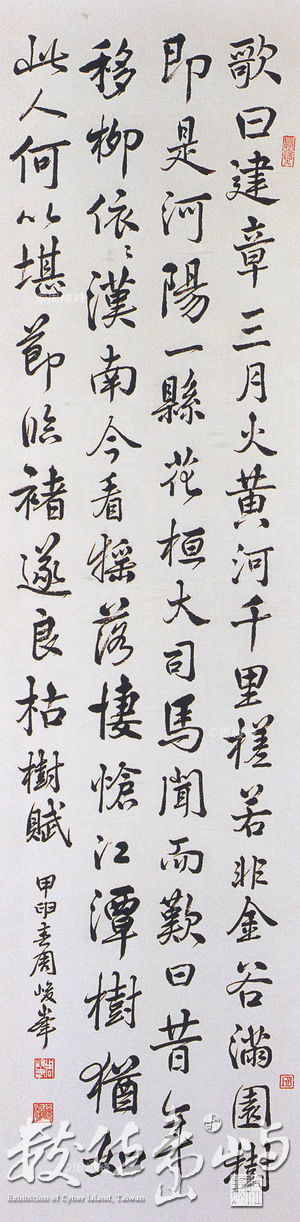 歌曰建章三月火黃河千里槎若非金谷滿園樹
即是河陽一縣花桓大司馬聞而歎曰昔年
移柳依〻漢南今看搖落悽愴江潭樹猶如
此人何以堪節臨褚遂良枯樹賦
甲申春周峻峯
數位島嶼
Exhibition of Cyber Island, Taiwan